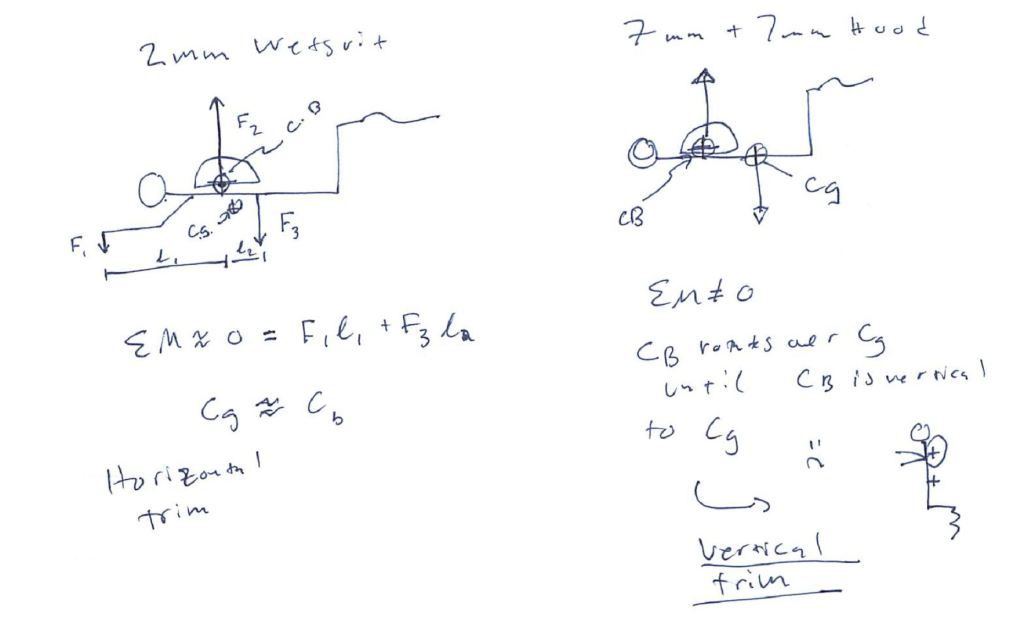 2mm Wetsuit
F₂
C.B
C.G.
F₁
F₃
L₁
L₂
ΣM ≈ 0 = F₁l₁ + F₃l₂
Cg ≈ Cb
Horizontal
trim
7mm + 7mm Hood
CB
Cg
ΣM ≠ 0
CB rotates over Cg
until CB is vertical
to Cg
vertical
trim